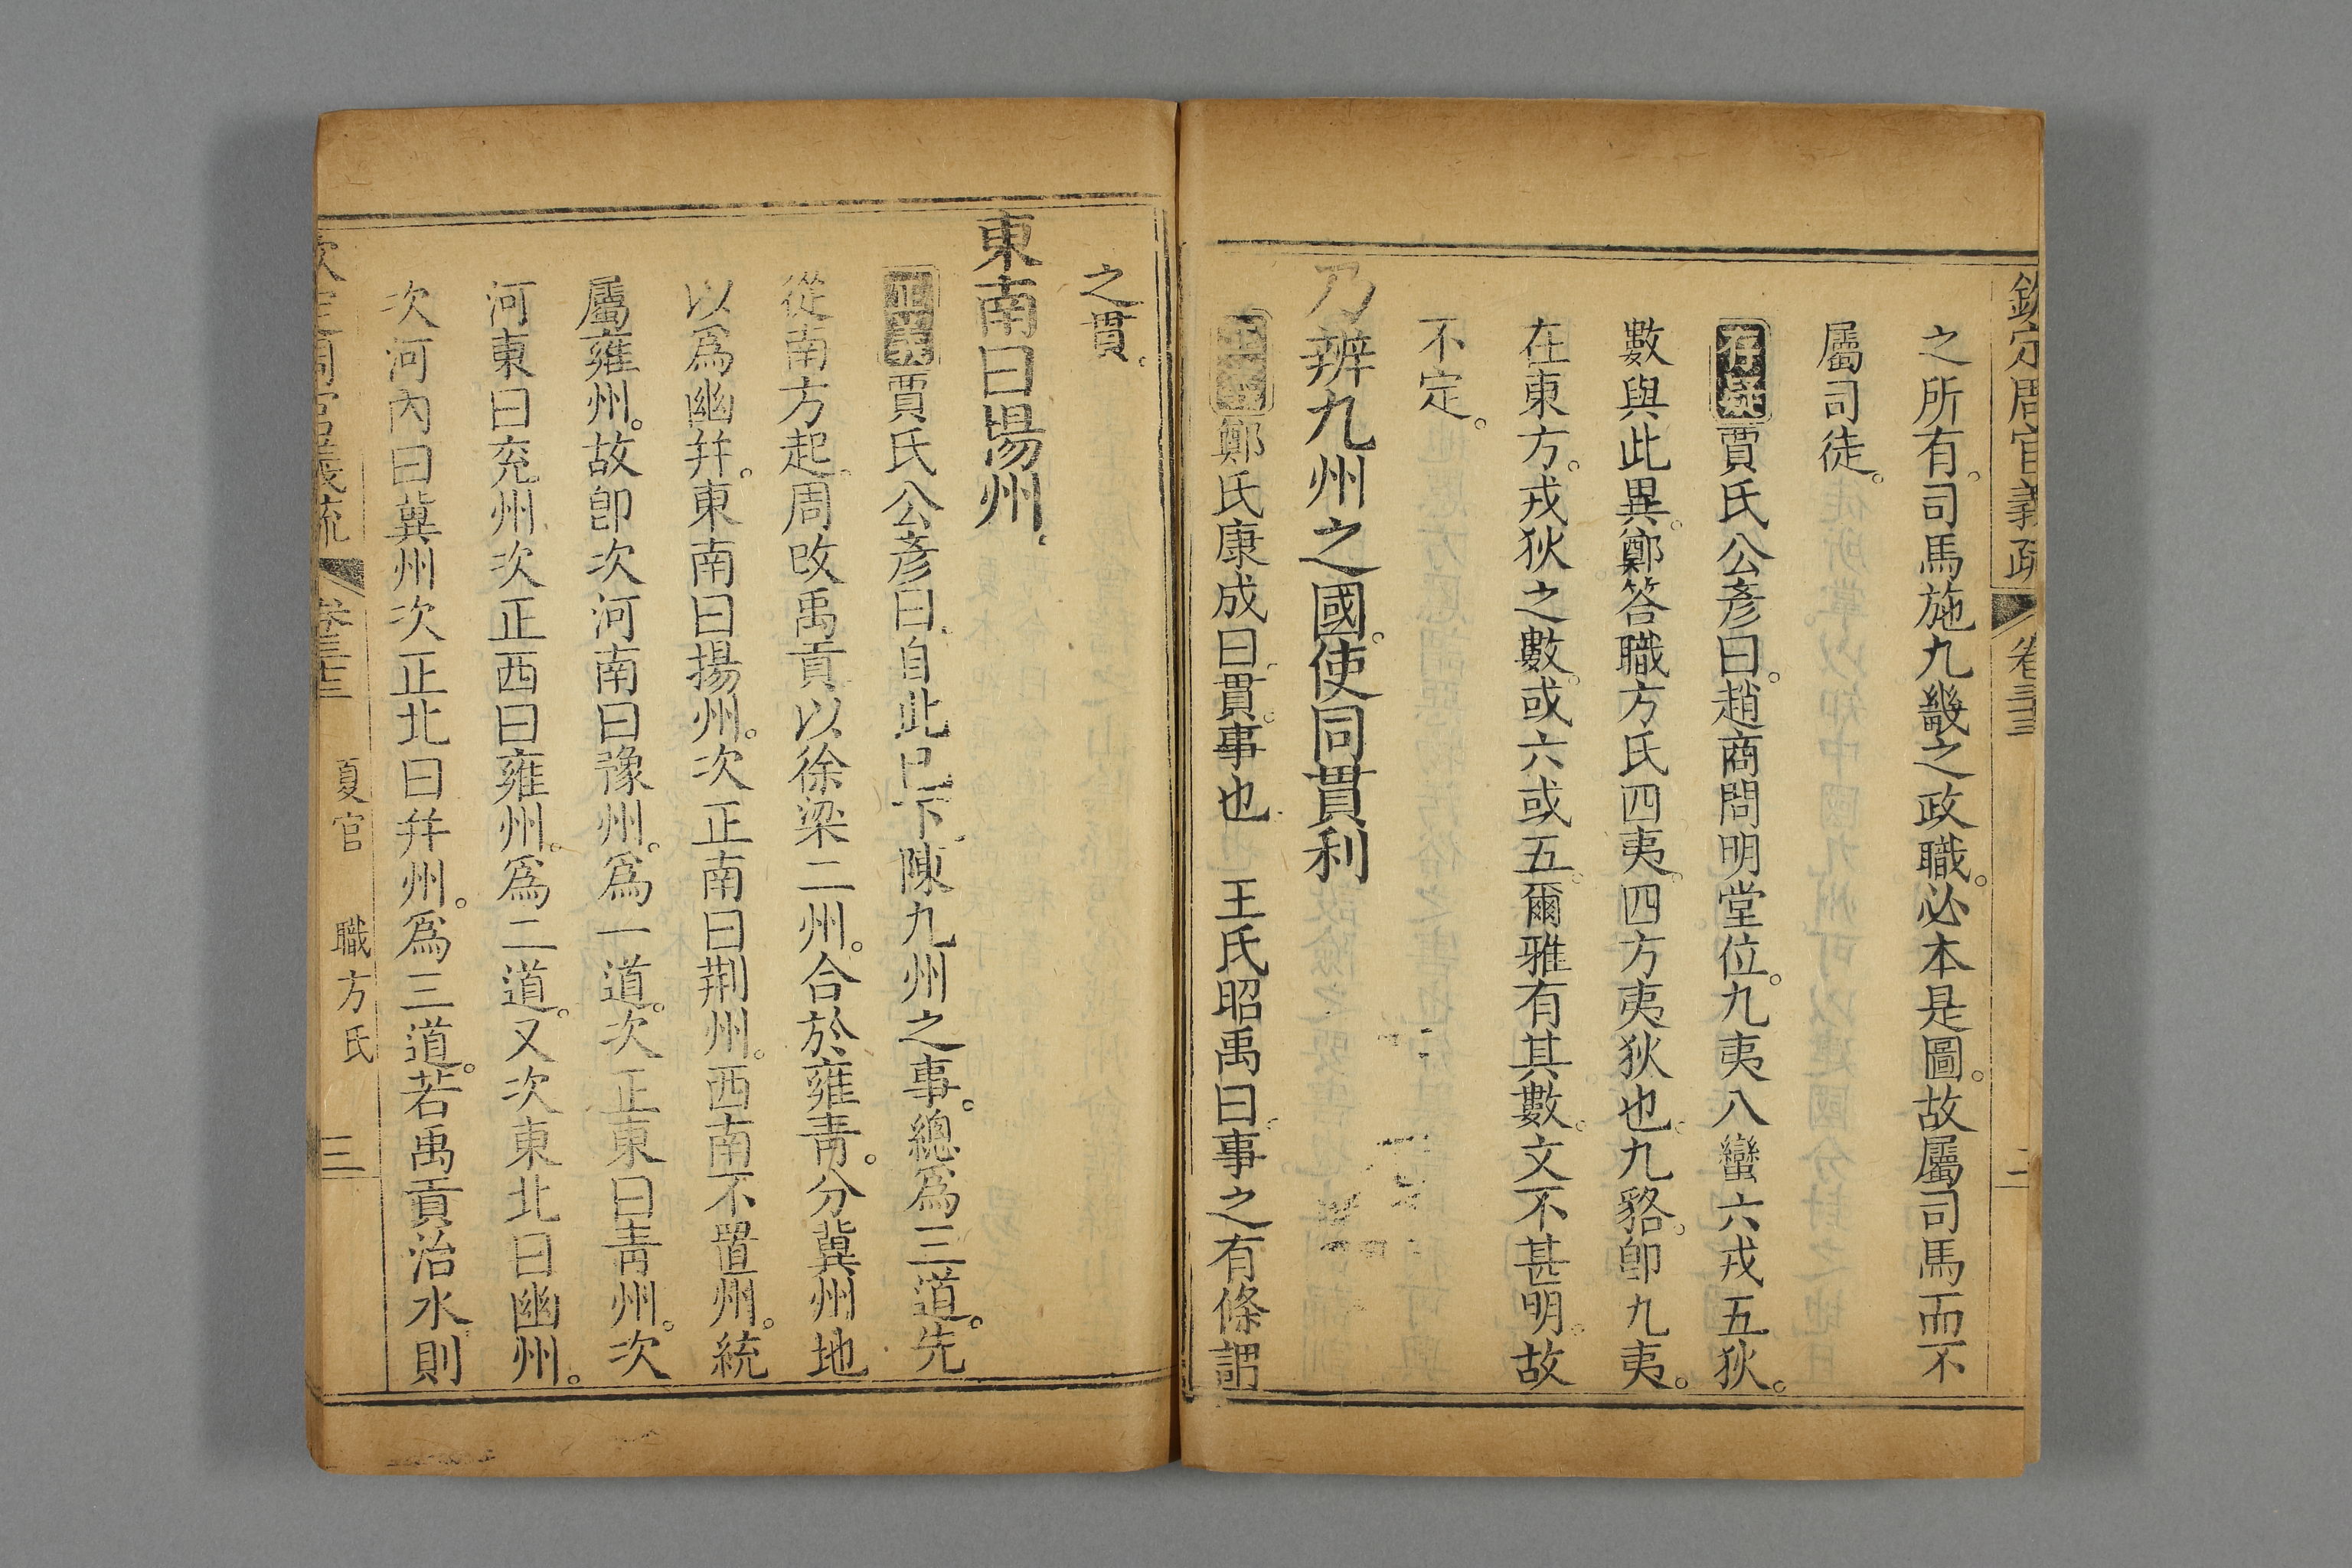 欽定周官義疏 卷三十三 二
之所有。司馬施九畿之政職。必本是圖。故屬司馬而不
屬司徒。
存疑賈氏公彥曰。趙商問明堂位。九夷八蠻六戎五狄。
數與此異。鄭答職方氏四夷。四方夷狄也。九貉。卽九夷。
在東方。戎狄之數。或六或五。爾雅有其數。文不甚明。故
不定。
乃辨九州之國。使同貫利
正義鄭氏康成曰。貫。事也 王氏昭禹曰。事之有條謂
之貫。
東南曰揚州。
正義賈氏公彥曰。自此已下。陳九州之事。總爲三道。先
從南方起。周改禹貢以徐梁二州。合於雍青。分冀州地
以爲幽幷。東南曰揚州。次正南曰荆州。西南不置州。統
屬雍州。故卽次河南曰豫州。爲一道。次正東曰靑州。次
河東曰兗州次正西曰雍州。爲二道。又次東北曰幽州。
次河內曰冀州次正北曰幷州。爲三道。若禹貢治水。則
欽定周官義疏 卷三十三 夏官 職方氏 三